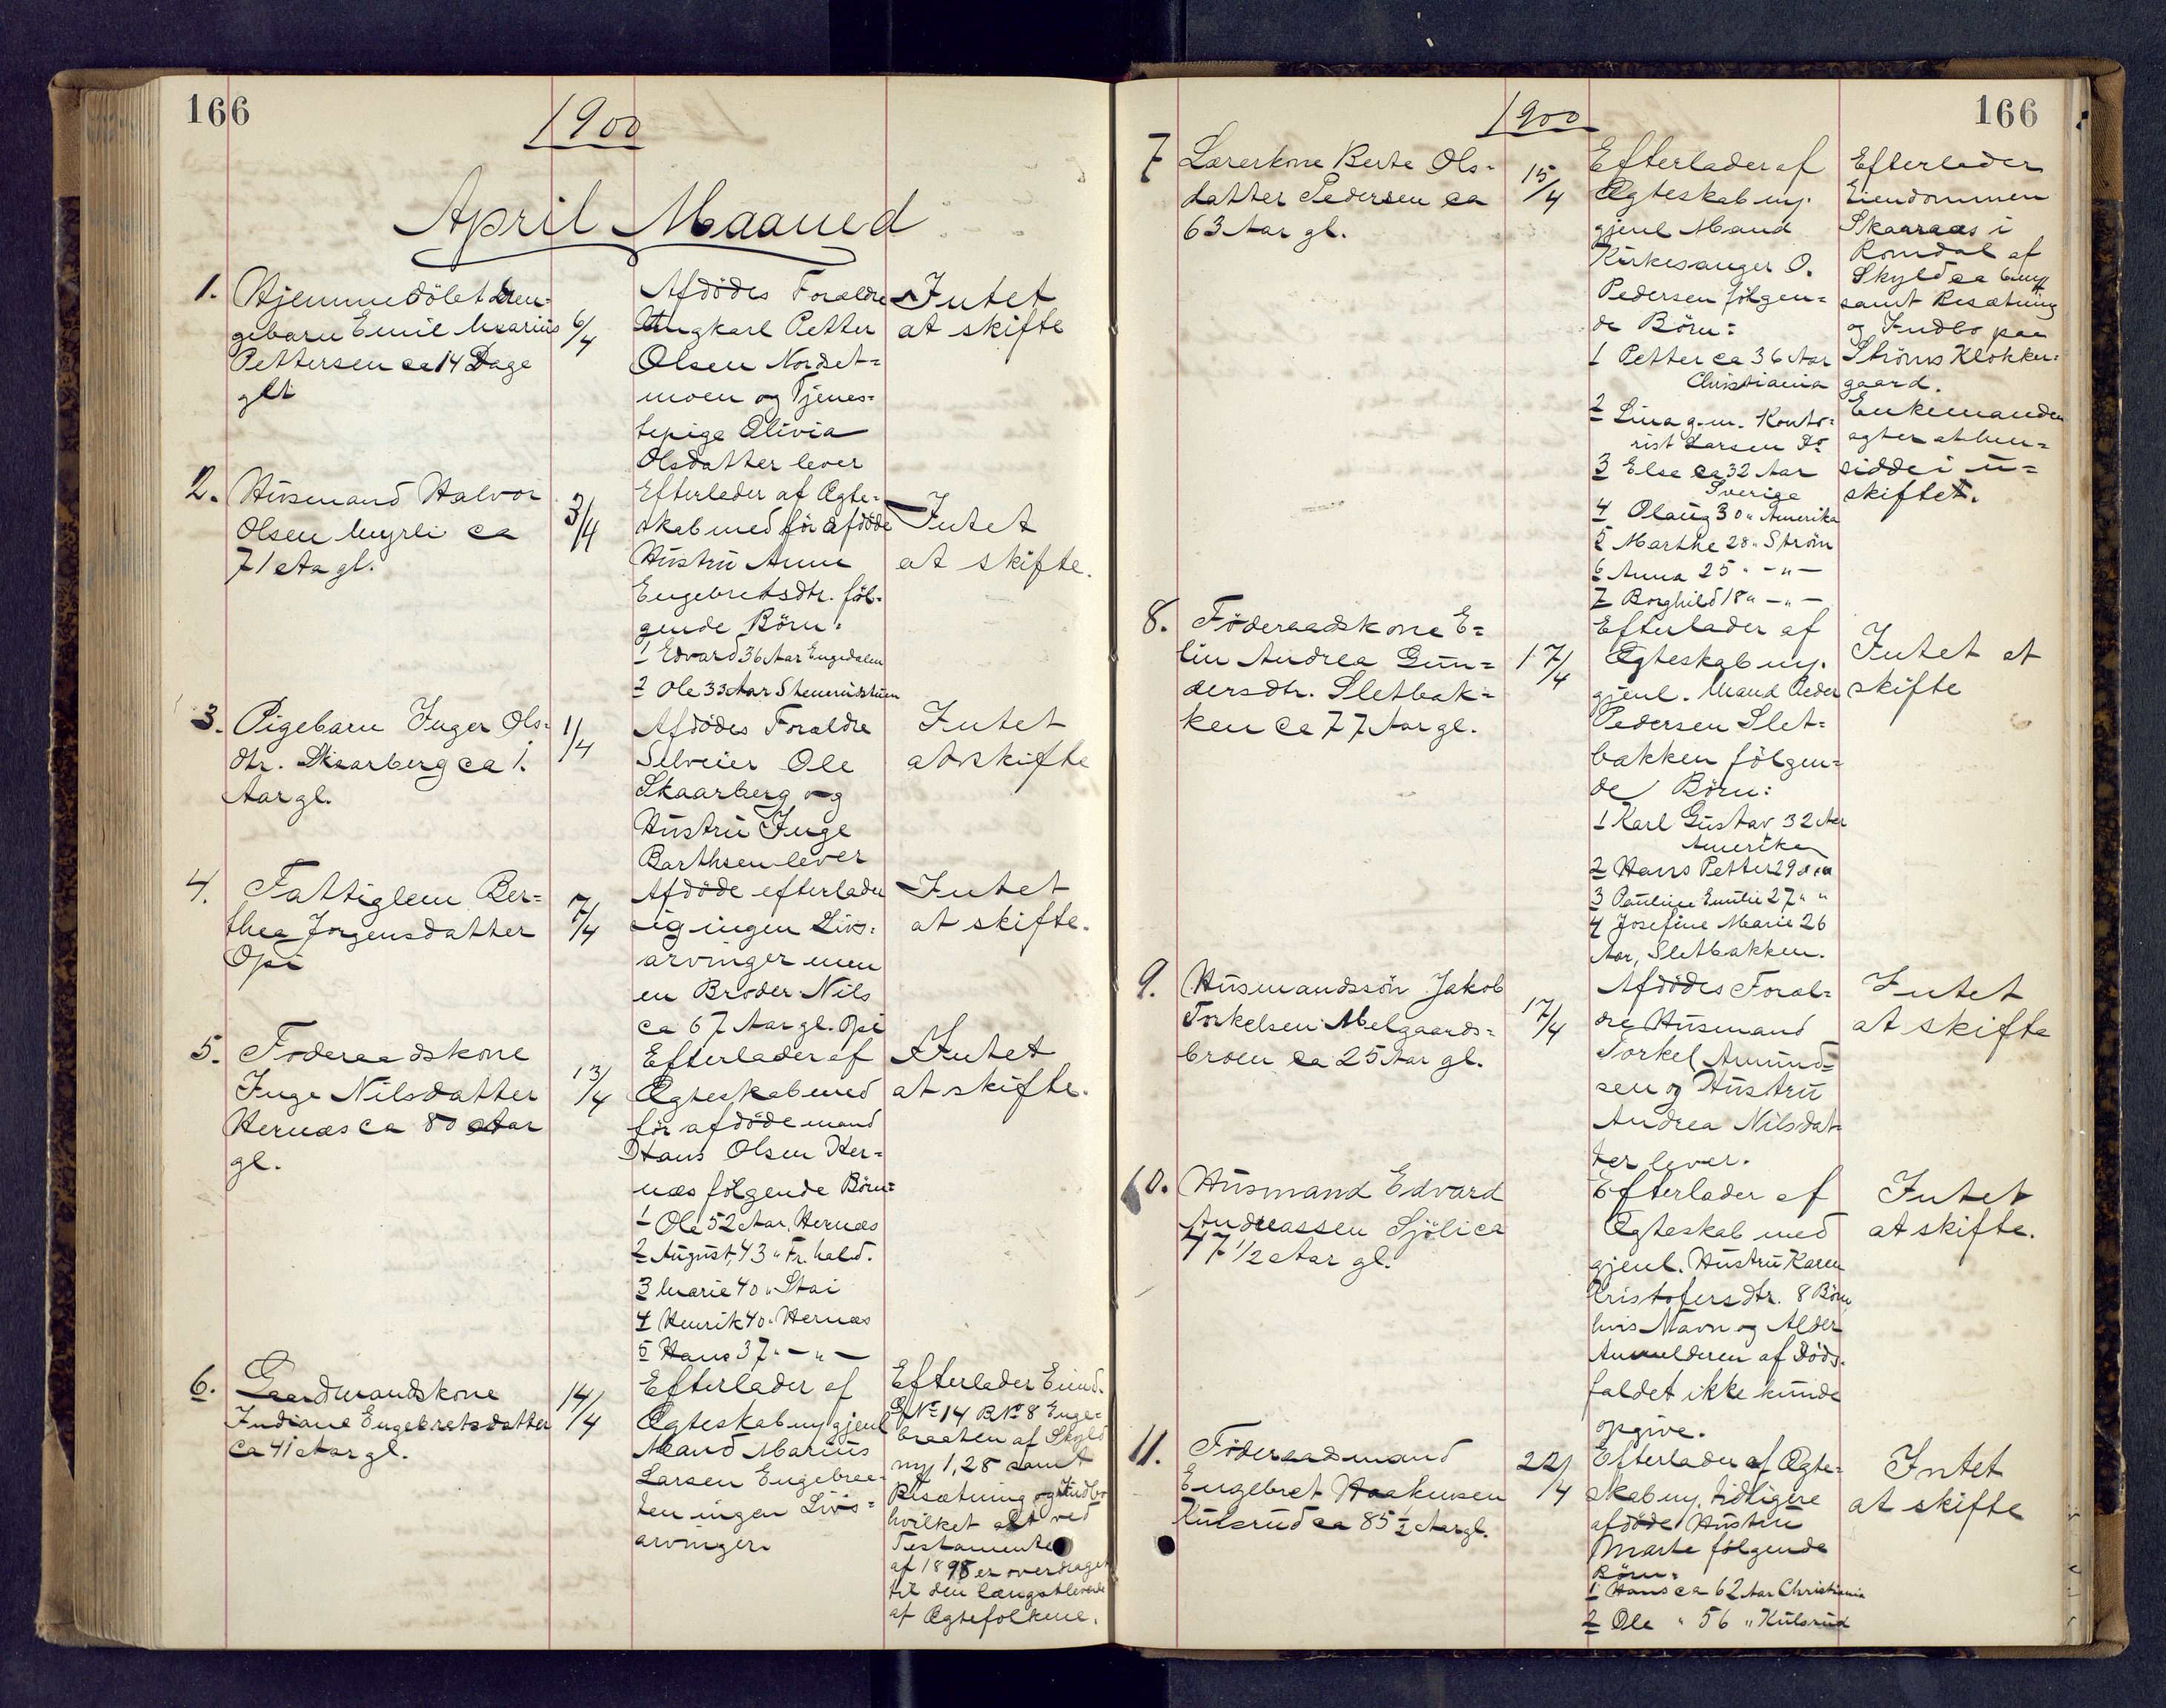 166
1900
April Maaned
1. Hjemmedöbt Dren-
gebarn Emil Marius
Pettersen ca 14 Dage
glt
6/4
Afdödes Forældre
Ungkarl Petter
Olsen Nordset-
moen og Tjenes-
tepige Olivia
Olsdatter lever
Intet
at skifte
2. Husmand Halvor
Olsen Myrli ca
71 Aa gl.
3/4
Efterlader af Ægte-
skab med för afdöde
Hustru Anne
Engebretsdtr. föl-
gende Börn:
1 Edvard 36 Aar Engedalen
2 Ole 33 Aar
Intet
at skifte.
3. Pigebarn Inger Ols-
dtr. Skaarberg ca 1.
Aar gl.
1/4
Afdödes Forældre
Selveier Ole
Skaarberg og
Hustru Inge
Barthsen lever
Intet
at skifte
4. Fattiglem Ber-
thea Jörgensdatter
Opi
7/4
Afdöde efterlader
sig ingen Livs-
arvinger men
en Broder Nils
ca 67 Aar gl. Opi
Intet
at skifte.
5. Föderaadskone
Inge Nilsdatter
Hernæs ca 80 Aar
gl.
13/4
Efterlader af
Ægteskab med
för afdöde mand
Hans Olsen Her-
næs fölgende Börn:
1 Ole 52 Aar, Hernæs
2 August, 43 " Fr. hald.
3 Marie 40 " Stai
4 Henrik 40 " Hernæs
5 Hans 37 " — " —
Intet
at skifte.
6. Gaardmandskone
Indiane Engebretsdatter
ca 41 Aar gl.
14/4
Efterlader af
Ægteskab m/ gjenl
Mand Marius
Larsen Engebraa-
ten ingen Livs-
arvinger.
Efterlader Eiend.
G No 14 B No 8 Enge-
braaten af Skyld
m/ 1,28 samt
Besætning og Indbo
hvilket alt ved
Testamente
af 1895 er overdraget
til den længstlevende
af Ægtefolkene.
1900
166
7 Lærerkone Berte Ols-
datter Pedersen ca
63 Aar gl.
15/4
Efterlader af
Ægteskab m/.
gjenl Mand
Kirkesanger O.
Pedersen fölgen-
de Börn:
1 Petter ca 36 Aar
Christiania
2 Lina g.m. Konto-
rist Larsen Do
3 Else ca 32 Aar
Sverige
4 Olaug 30 " Amerika
5 Marthe 28 " Ström
6 Anna 25 " — " —
7 Borghild 18 " — " —
Efterlader
Eiendommen
Skaaraas i
Romdal af
Skyld ca 6 m/
samt Besætning
og Indbo paa
Ströms Klokker-
gaard.
Enkemanden
agter at hen-
sidde i u-
skiftet.
8. Föderaadskone E-
lin Andrea Gun-
dersdtr. Sletbak-
ken ca 77 Aar gl.
17/4
Efterlader af
Ægteskab m/.
gjenl. Mand Peder
Pedersen Slet-
bakken fölgen-
de Börn:
1 Karl Gustav 32 Aar
Amerika
2 Hans Petter 29
3 Pauline Emilie 27 " "
4 Josefine Marie 26
Aar, Sletbakken.
Intet at
skifte
9. Husmandssön Jakob
Torkelsen Melgaards-
broen ca 25 Aar gl.
17/4
Afdödes Foræl-
dre Husmand
Torkel Amund-
sen og Hustru
Andrea Nilsdat-
ter lever.
Intet
at skifte
10. Husmand Edvard
Andreassen Sjöli ca
47 1/2 Aar gl.
Efterlader af
Ægteskab med
gjenl. Hustru Karen
Kristofersdtr. 8 Börn
hvis Navn og Alder
Anmelderen af Döds-
faldet ikke kunde
opgive.
Intet
at skifte.
11. Föderaadsmand
Engebret Haakensen
Kulsrud ca 85 1/2 Aar gl.
22/4
Efterlader af Ægte-
skab m/. tidligere
afdöde Hustru
Marte fölgende
Börn:
1 Hans ca 62 Aar Christiania
2 Ole " 56 " Kulsrud
Intet
at skifte